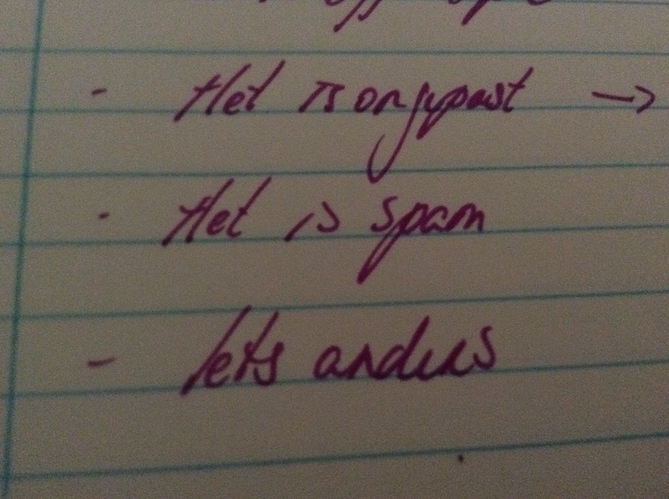 - Het is ongepast →
- Het is spam
- Iets anders